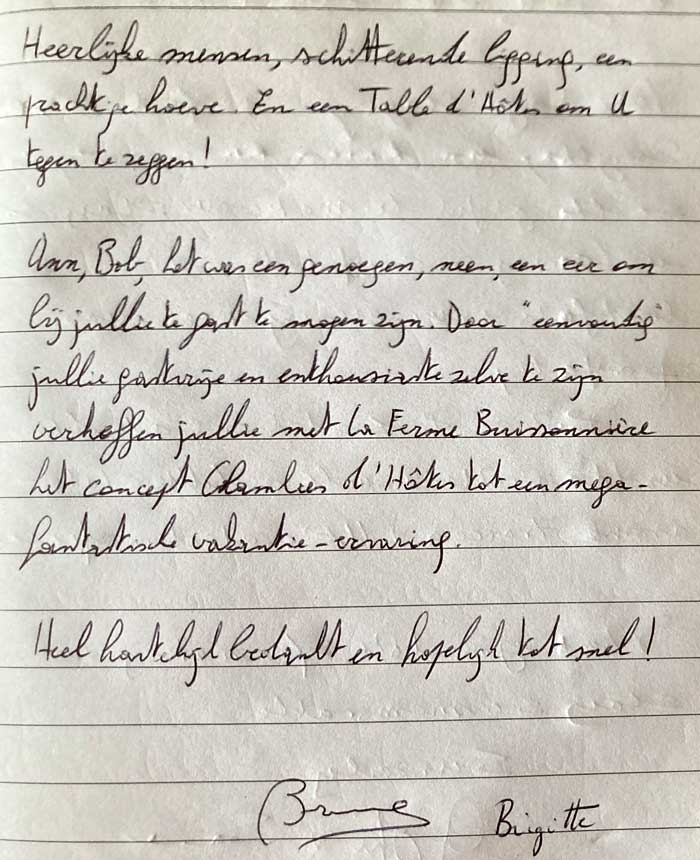 Heerlijke mensen, schitterende ligging, een
prachtige hoeve. En een Table d'Hôtes om U
tegen te zeggen!
Ann, Bob, het was een genoegen, neen, een eer om
bij jullie te gast te mogen zijn. Door "eenvoudig"
jullie gastvrije en enthousiaste zelve te zijn
verheffen jullie met la Ferme Buissonnière
het concept Chambres d'Hôtes tot een mega-
fantastische vakantie-ervaring.
Heel hartelijk bedankt en hopelijk tot snel!
Brigitte